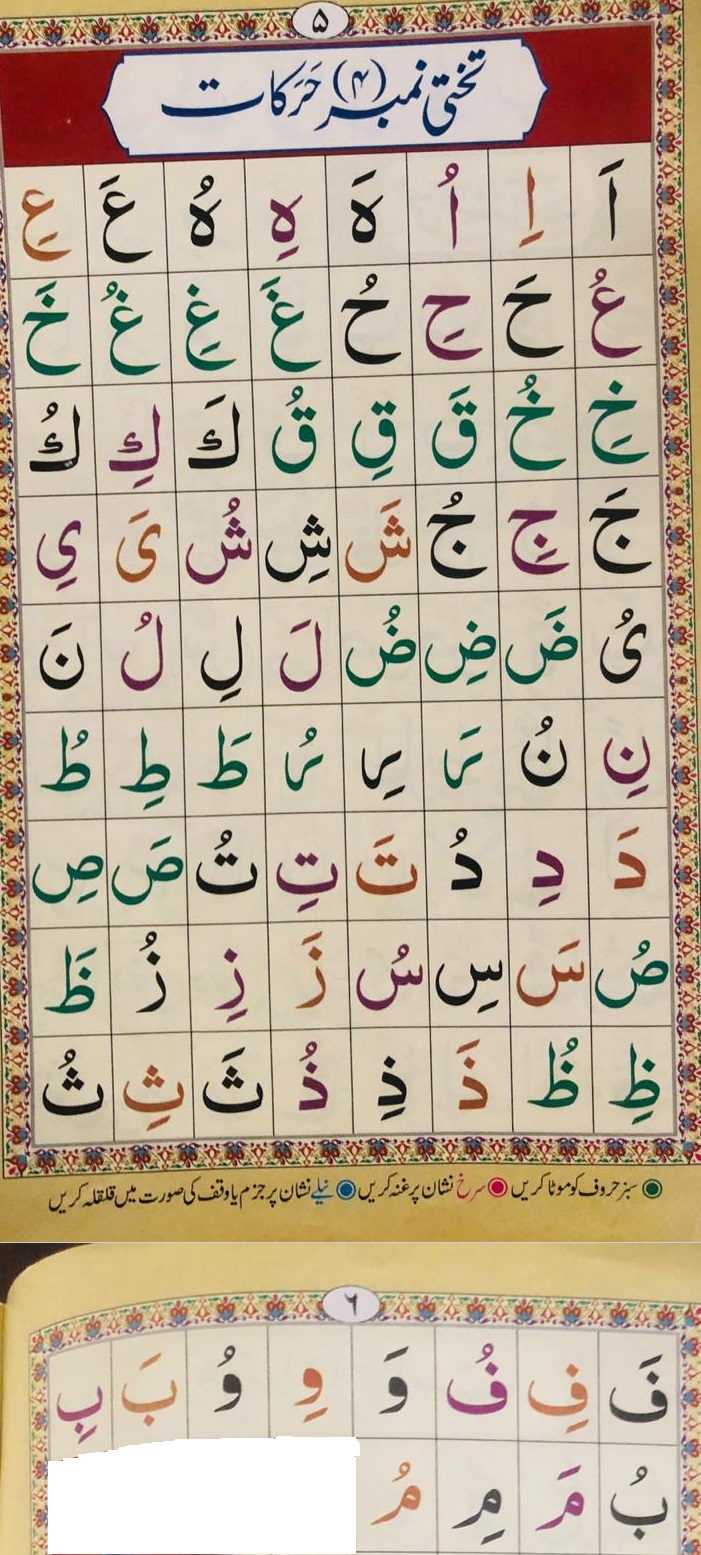 ۵
تختی نمبر (۴) حَرَکات
اَ اِ اُ ہَ ہِ ہُ عَ عِ
عُ حَ حِ حُ غَ غِ غُ خَ
خِ خُ قَ قِ قُ كَ كِ كُ
جَ جِ جُ شَ شِ شُ یَ یِ
یُ ضَ ضِ ضُ لَ لِ لُ نَ
نِ نُ رَ رِ رُ طَ طِ طُ
دَ دِ دُ تَ تِ تُ صَ صِ
صُ سَ سِ سُ زَ زِ زُ ظَ
ظِ ظُ ذَ ذِ ذُ ثَ ثِ ثُ
سبز حروف کو موٹا کریں سرخ نشان پر غنہ کریں نیلے نشان پر جزم یا وقف کی صورت میں قلقلہ کریں
۶
فَ فِ فُ وَ وِ وُ بَ بِ
بُ مَ مِ مُ